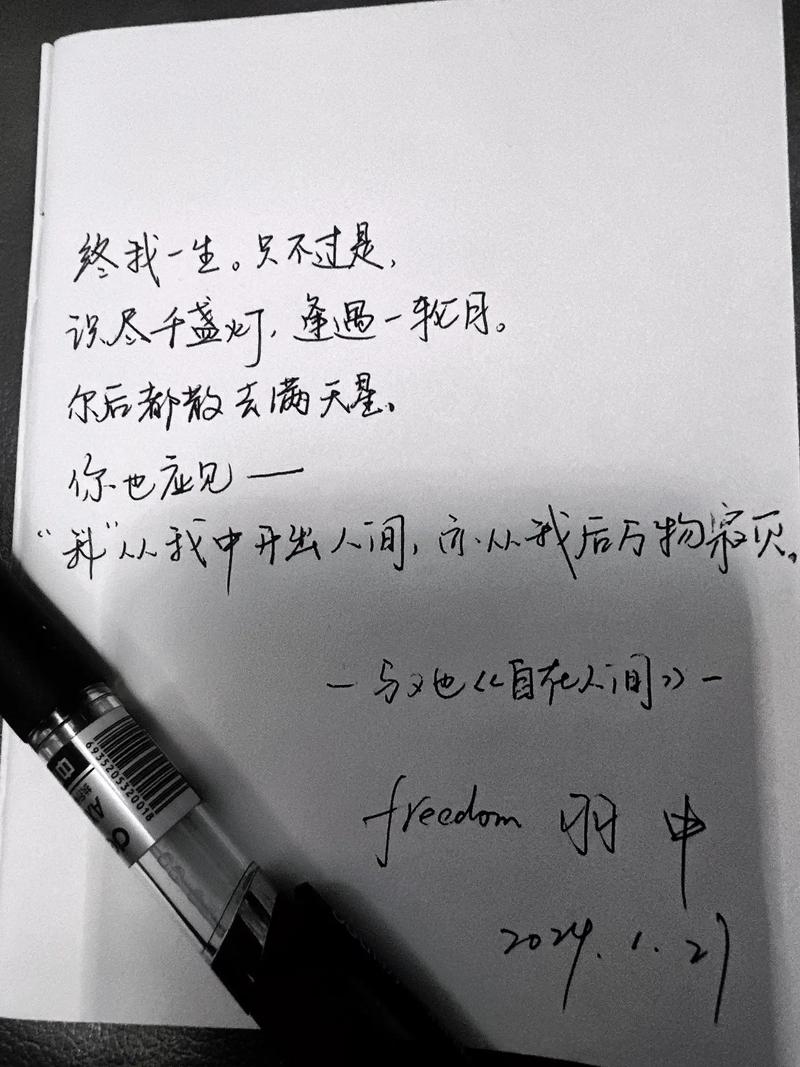 终我一生。只不过是，
识尽千盏灯，逢遇一轮月。
尔后都散去满天星。
你也应见——
“我”从我中开出人间，亦从我后万物寂灭。
—与她《自在人间》—
freedom 羽中
2024.1.21
6935205320018